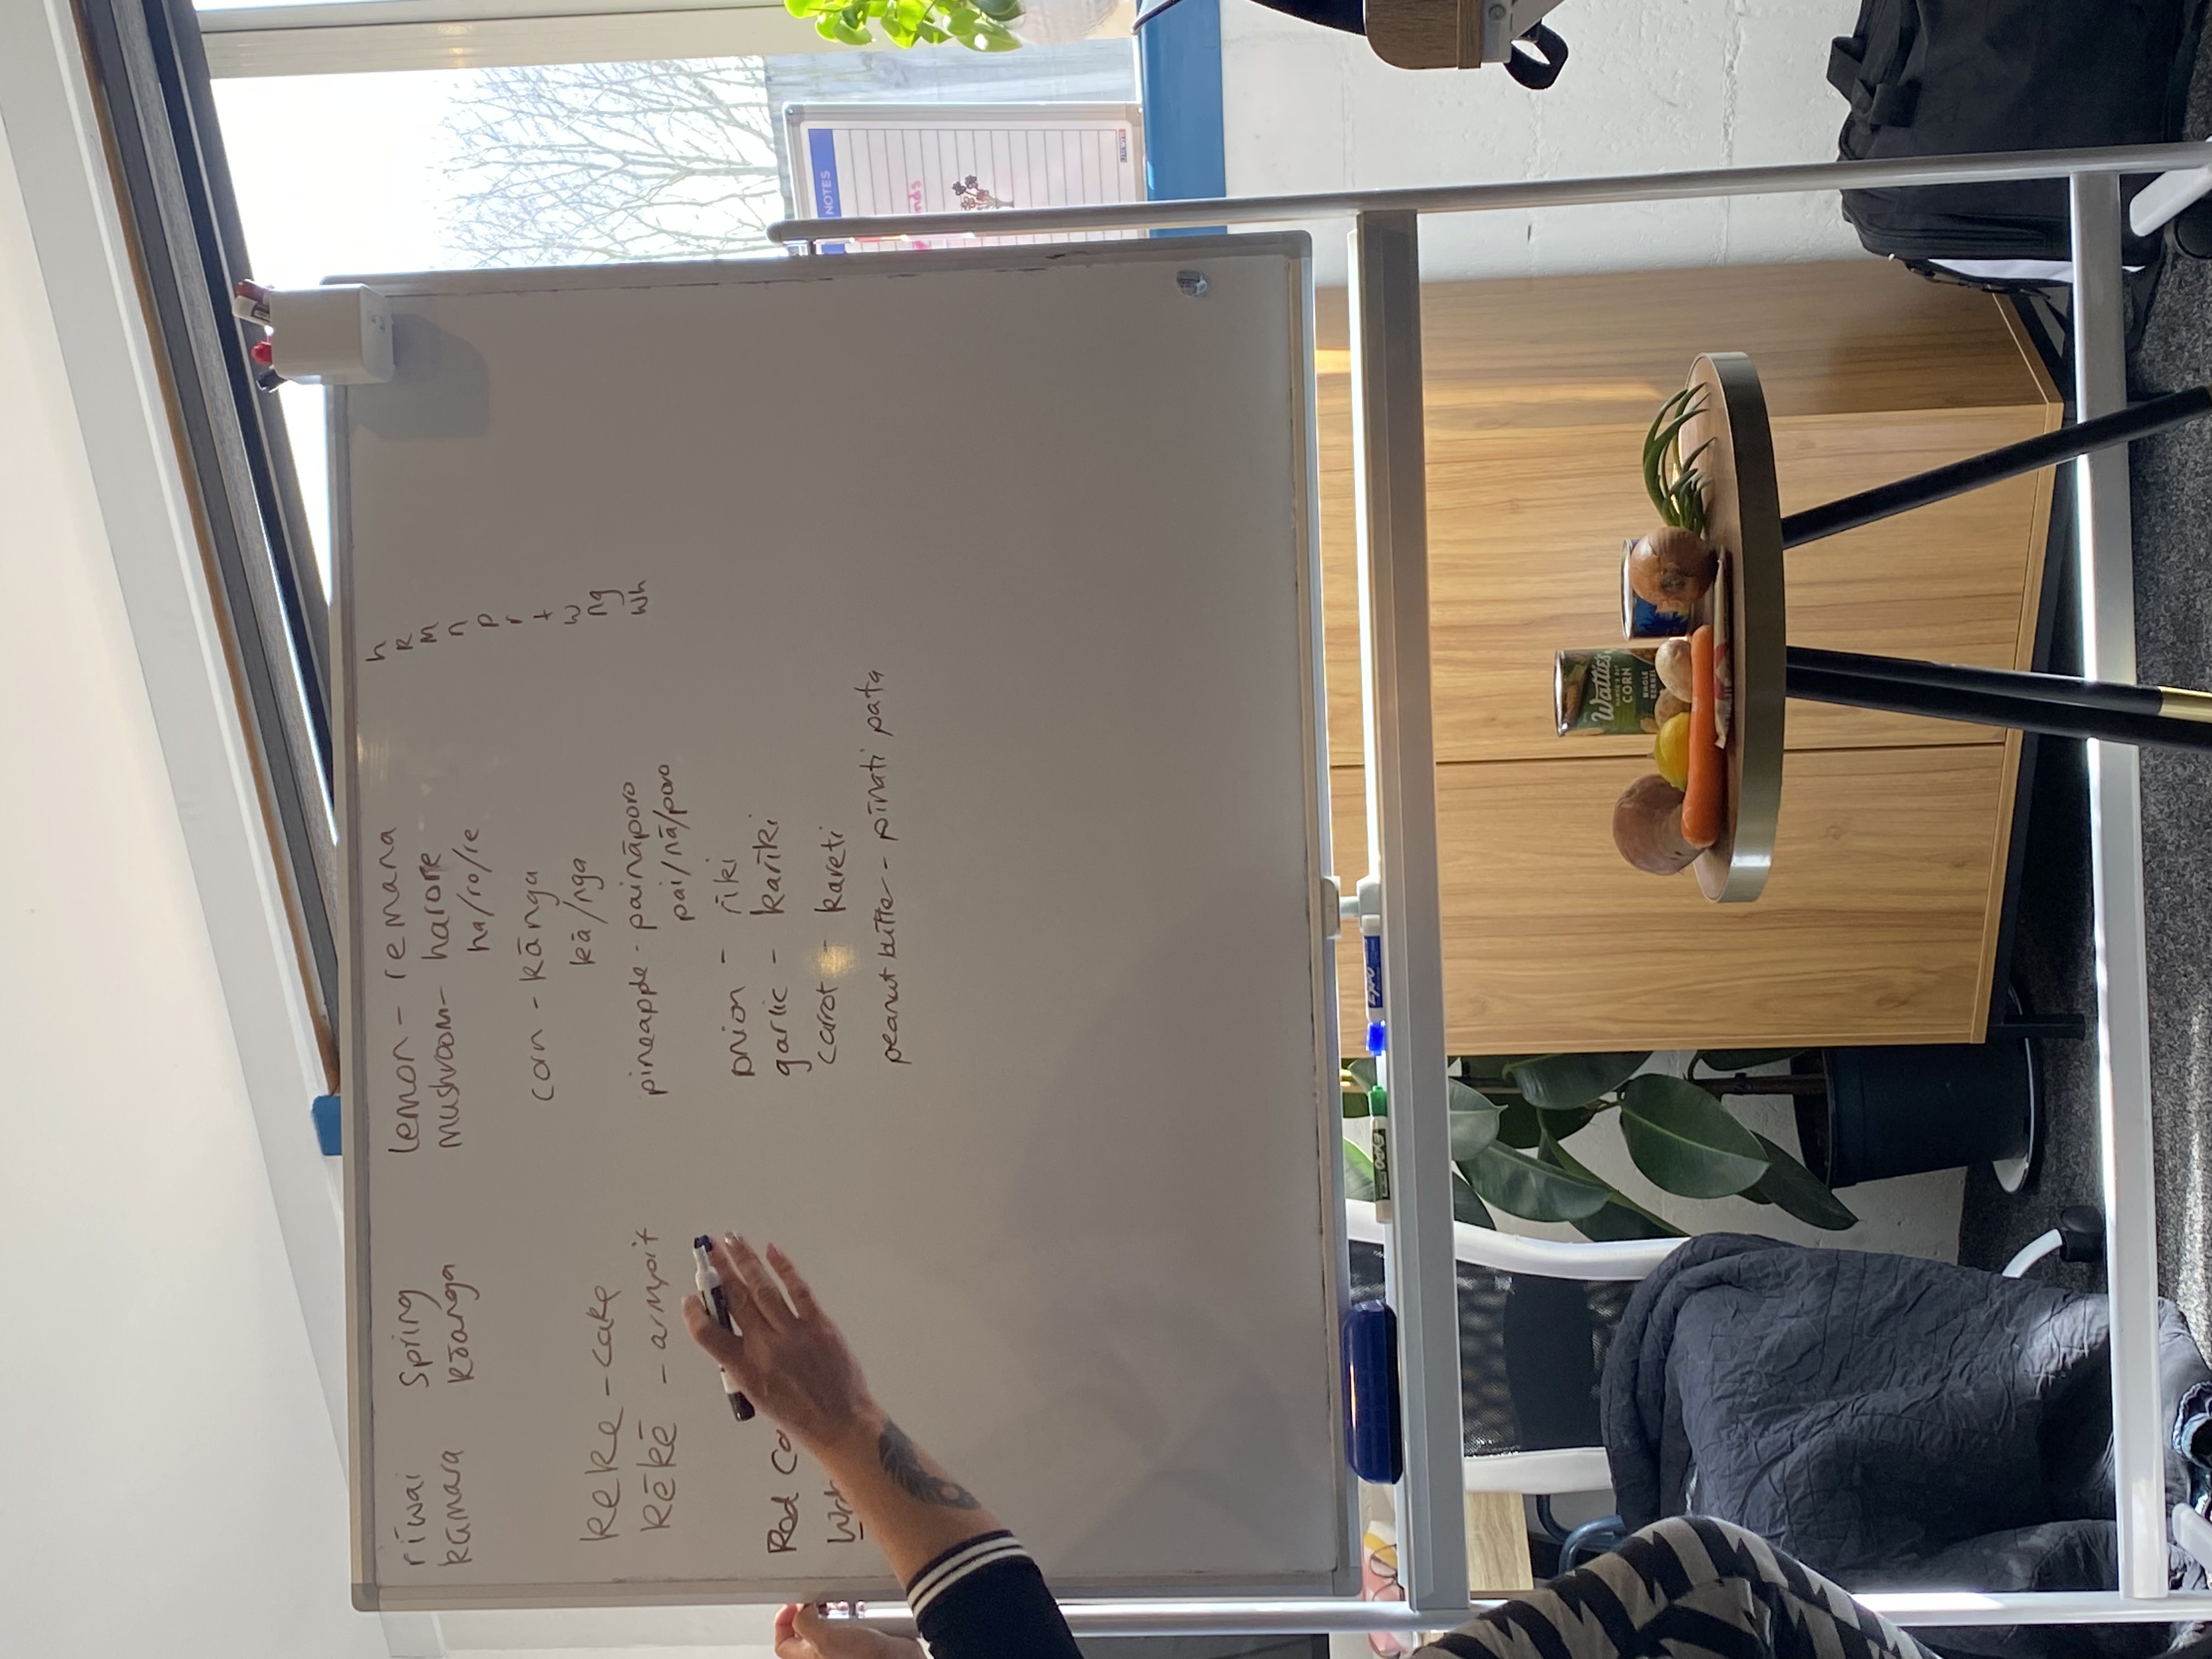 rīwai
kūmara
Spring
kōanga
keke - cake
kēkē - armpit
Red Co
lemon - remana
mushroom - harore
ha/ro/re
corn - kānga
kā/nga
pineapple - paināporo
pai/nā/poro
onion - riki
garlic - kariki
carrot - kareti
peanut butter - pīnati pata
h
k
m
n
p
r
t
w
ng
wh
NOTES
Wattie's
CORN
WHOLE
KERNEL
EXPO
EXPO